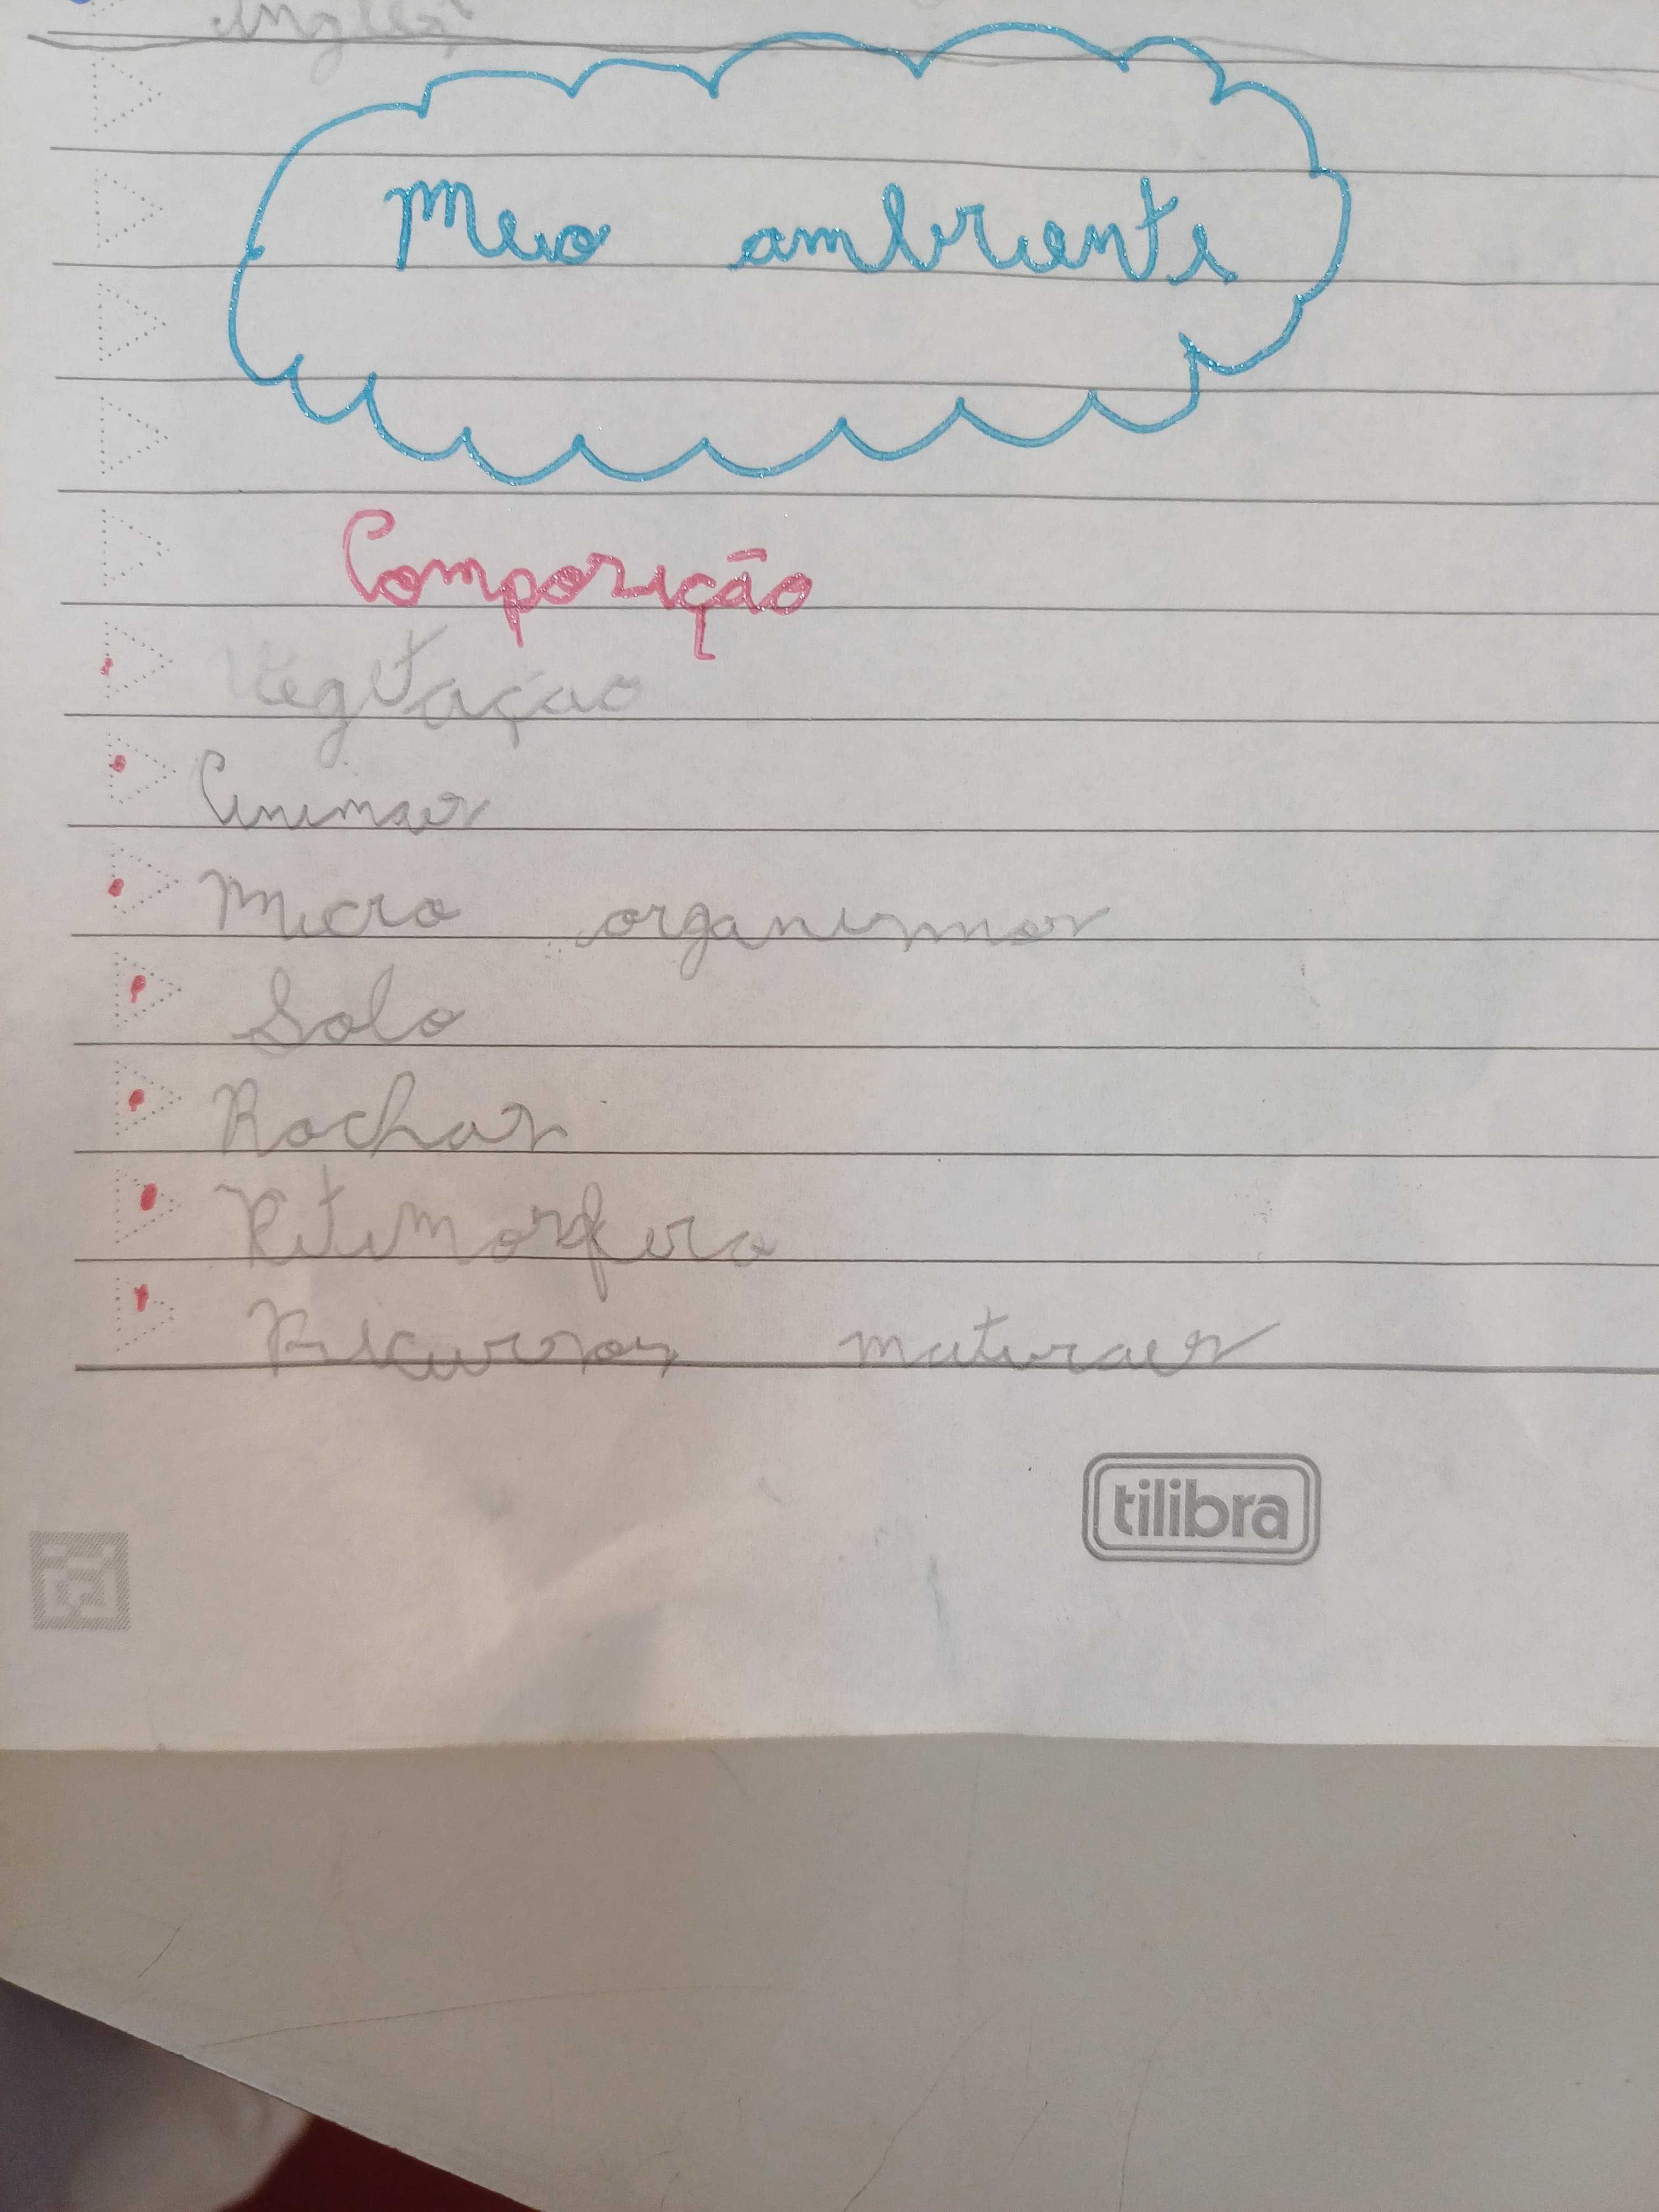 Inglês
Meio ambiente
Composição
Vegetação
Animais
Micro organismos
Solo
Rochas
Ritimosfera
Recursos naturais
tilibra